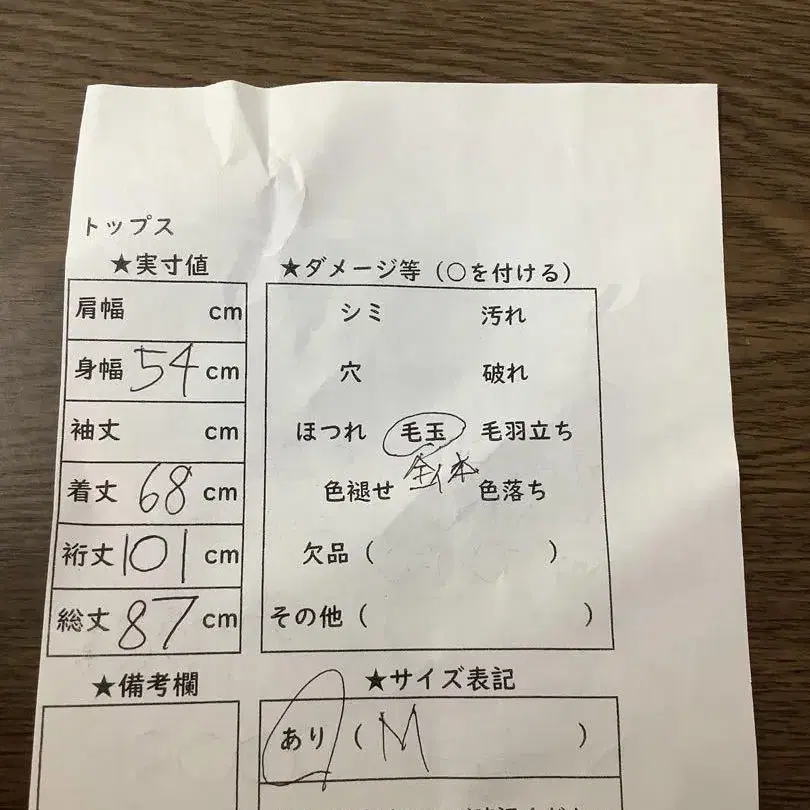 トップス
★実寸値
肩幅 cm
身幅 54 cm
袖丈 cm
着丈 68 cm
裄丈 101 cm
総丈 87 cm
★ダメージ等(○を付ける)
シミ 汚れ
穴 破れ
ほつれ 毛玉 毛羽立ち
全体
色褪せ 色落ち
欠品( )
その他( )
★備考欄
★サイズ表記
あり(M )